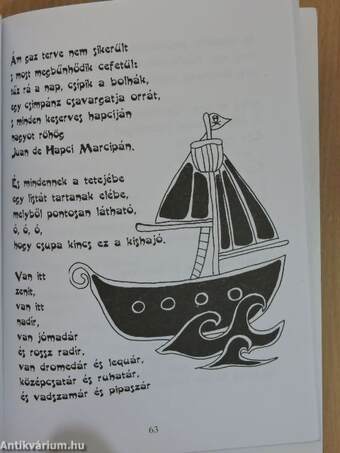 Ám gaz terve nem sikerült
s most megbűnhődik cefetül:
tűz rá a nap, csípik a bolhák,
egy csimpánz csavargatja orrát,
s minden keserves hapciján
nagyot röhög
Juan de Hapci Marcipán.
És mindennek a tetejébe
egy listát tartanak elébe,
melyből pontosan látható,
ó, ó, ó,
hogy csupa kincs ez a kishajó.
Van itt
zenit,
van itt
nadír,
van jómadár
és rossz radír,
van dromedár és lequár,
középcsatár és ruhatár,
és vadszamár és pipaszár
63
Antikvárium.hu